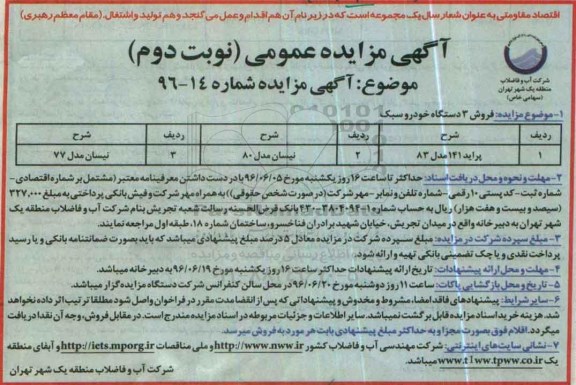 اقتصاد مقاومتی به عنوان شعار سال یک مجموعه است که در زیر نام آن هم اقدام و عمل می گنجد و هم تولید و اشتغال. (مقام معظم رهبری)
آگهی مزایده عمومی (نوبت دوم)
موضوع: آگهی مزایده شماره ۱۴-۹۶
شرکت آب و فاضلاب
منطقه یک شهر تهران
(سهامی خاص)
۱-موضوع مزایده: فروش ۳ دستگاه خودرو سبک
ردیف شرح ردیف شرح ردیف شرح
۱ پراید ۱۴۱ مدل ۸۳ ۲ نیسان مدل ۸۰ ۳ نیسان مدل ۷۷
۲- مهلت و نحوه و محل دریافت اسناد: حداکثر تا ساعت ۱۶ روز یکشنبه مورخ ۹۶/۰۶/۰۵ با در دست داشتن معرفینامه معتبر (مشتمل بر شماره اقتصادی-
شماره ثبت- کد پستی ۱۰ رقمی- شماره تلفن و نمابر- مهر شرکت (در صورت شخص حقوقی)) به همراه مهر شرکت و فیش بانکی پرداختی به مبلغ ۳۲۷,۰۰۰
(سیصد و بیست و هفت هزار) ریال به حساب شماره بانک قرض الحسنه رسالت شعبه تجریش بنام شرکت آب و فاضلاب منطقه یک
شهر تهران به دبیرخانه واقع در میدان تجریش، خیابان شهید برادران فناخسرو، ساختمان شماره ۱۸، طبقه اول مراجعه نمایند.
۳- مبلغ سپرده شرکت در مزایده: مبلغ سپرده شرکت در مزایده معادل ۵ درصد مبلغ پیشنهادی میباشد که باید بصورت ضمانتنامه بانکی و یا رسید
پرداخت نقدی و یا چک تضمینی بانکی تهیه و ارائه شود.
۴- مهلت و محل ارائه پیشنهادات: تاریخ ارائه پیشنهادات حداکثر ساعت ۱۶ روز یکشنبه مورخ ۹۶/۰۶/۱۹ به دبیرخانه میباشد.
۵- تاریخ و محل بازگشایی پاکات: ساعت ۱۱ روز دوشنبه مورخ ۹۶/۰۶/۲۰ در محل سالن کنفرانس شرکت دستگاه مزایده گزار میباشد.
۶- سایر شرایط: پیشنهادهای فاقد امضا، مشروط و مخدوش و پیشنهاداتی که پس از انقضا مدت مقرر در فراخوان واصل شود مطلقا ترتیب اثر داده نخواهد
شد. هزینه خرید اسناد مزایده قابل برگشت نمیباشد. سایر اطلاعات و جزئیات مربوطه در اسناد مزایده مندرج است. در مقابل فروش، وجه آن نقدا دریافت
میگردد. اقلام فوق بصورت مجزا و به حداکثر مبلغ پیشنهادی بابت هر مورد به فروش میرسد.
۷- نشانی سایت های اینترنتی: شرکت مهندسی آب و فاضلاب کشور http://www.nww.ir و ملی مناقصات http://iets.mporg.ir و آبفای منطقه
یک www.t1ww.tpww.co.ir میباشد.
شرکت آب و فاضلاب منطقه یک شهر تهران